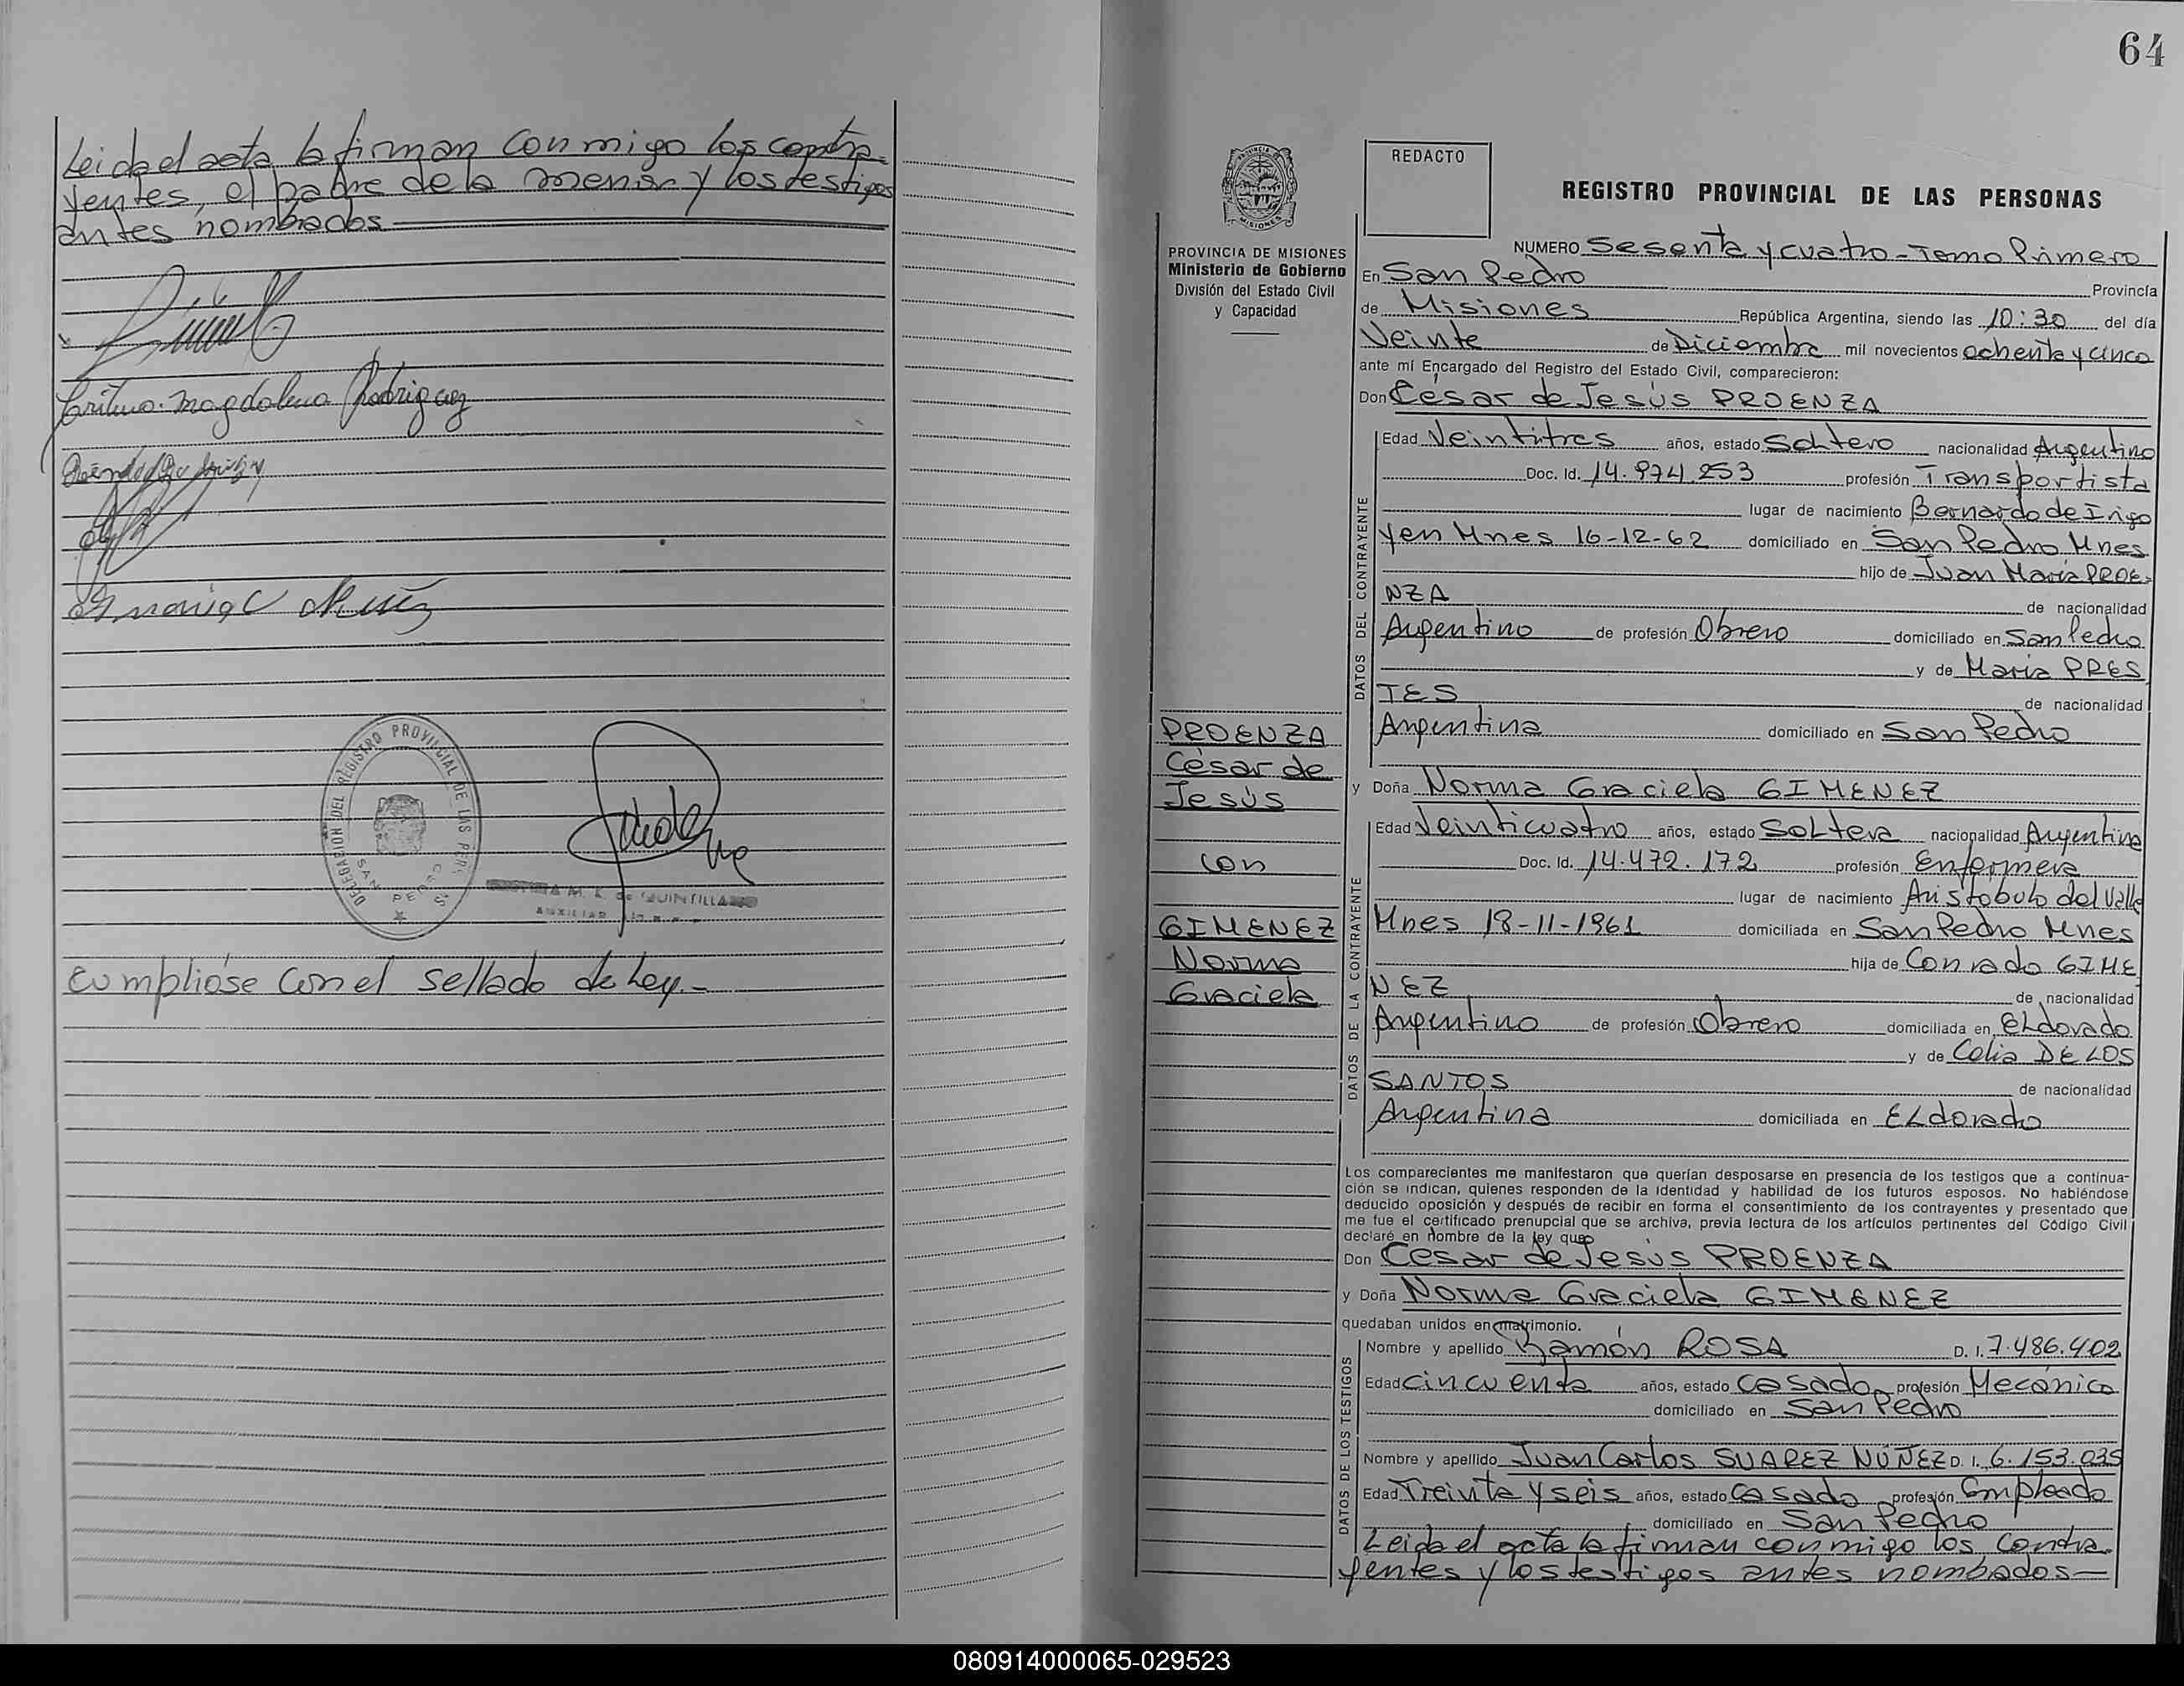 Leida el acta la firman conmigo los contra-
yentes, el padre de la menor y los testigos
antes nombrados
Magdalena Rodriguez
DELEGACION DEL REGISTRO PROVINCIAL DE LAS PERS.
SAN PEDRO
M. E. de QUINTILLANO
AUXILIAR
Cumplióse con el sellado de Ley.-
64
REDACTO
REGISTRO PROVINCIAL DE LAS PERSONAS
PROVINCIA DE MISIONES
Ministerio de Gobierno
División del Estado Civil
y Capacidad
NUMERO Sesenta y cuatro - Tomo Primero
En San Pedro Provincia
de Misiones República Argentina, siendo las 10:30 del día
Veinte de Diciembre mil novecientos ochenta y cinco
ante mí Encargado del Registro del Estado Civil, comparecieron:
Don César de Jesús PROENZA
DATOS DEL CONTRAYENTE
Edad Veintitres años, estado Soltero nacionalidad Argentino
Doc. Id. 14.974.253 profesión Transportista
lugar de nacimiento Bernardo de Irigo
yen Mnes 16-12-62 domiciliado en San Pedro Mnes
hijo de Juan María PROE-
NZA de nacionalidad
Argentino de profesión Obrero domiciliado en San Pedro
y de María PRES
TES de nacionalidad
Argentina domiciliado en San Pedro
PROENZA
César de
Jesús
con
GIMENEZ
Norma
Graciela
y Doña Norma Graciela GIMENEZ
DATOS DE LA CONTRAYENTE
Edad Veinticuatro años, estado Soltera nacionalidad Argentina
Doc. Id. 14.472.172 profesión Enfermera
lugar de nacimiento Aristobulo del Valle
Mnes 18-11-1961 domiciliada en San Pedro Mnes
hija de Conrado GIME
NEZ de nacionalidad
Argentino de profesión Obrero domiciliada en ELdorado
y de Celia DE LOS
SANTOS de nacionalidad
Argentina domiciliada en ELdorado
Los comparecientes me manifestaron que querían desposarse en presencia de los testigos que a continua-
ción se indican, quienes responden de la identidad y habilidad de los futuros esposos. No habiéndose
deducido oposición y después de recibir en forma el consentimiento de los contrayentes y presentado que
me fue el certificado prenupcial que se archiva, previa lectura de los artículos pertinentes del Código Civil
declaré en nombre de la ley que
Don César de Jesús PROENZA
y Doña Norma Graciela GIMENEZ
quedaban unidos en matrimonio.
DATOS DE LOS TESTIGOS
Nombre y apellido Ramón ROSA D. I. 7.486.402
Edad cincuenta años, estado Casado profesión Mecánico
domiciliado en San Pedro
Nombre y apellido Juan Carlos SUAREZ NÚÑEZ D. I. 6.153.035
Edad Treinta y seis años, estado Casado profesión Empleado
domiciliado en San Pedro
Leida el acta la firman conmigo los contra-
yentes y los testigos antes nombrados-
080914000065-029523